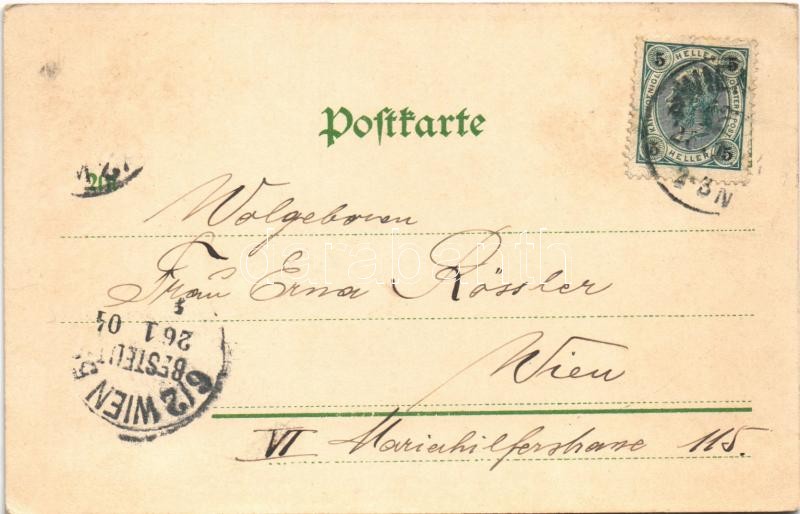 Postkarte
5 HELLER 5
5 HELLER 5
2-3N
An
Wolgeboren
Frau Erna Rössler
Wien
VI Mariahilferstrasse 115.
6/2 WIEN
BESTELLT
26 1 04
darabanth